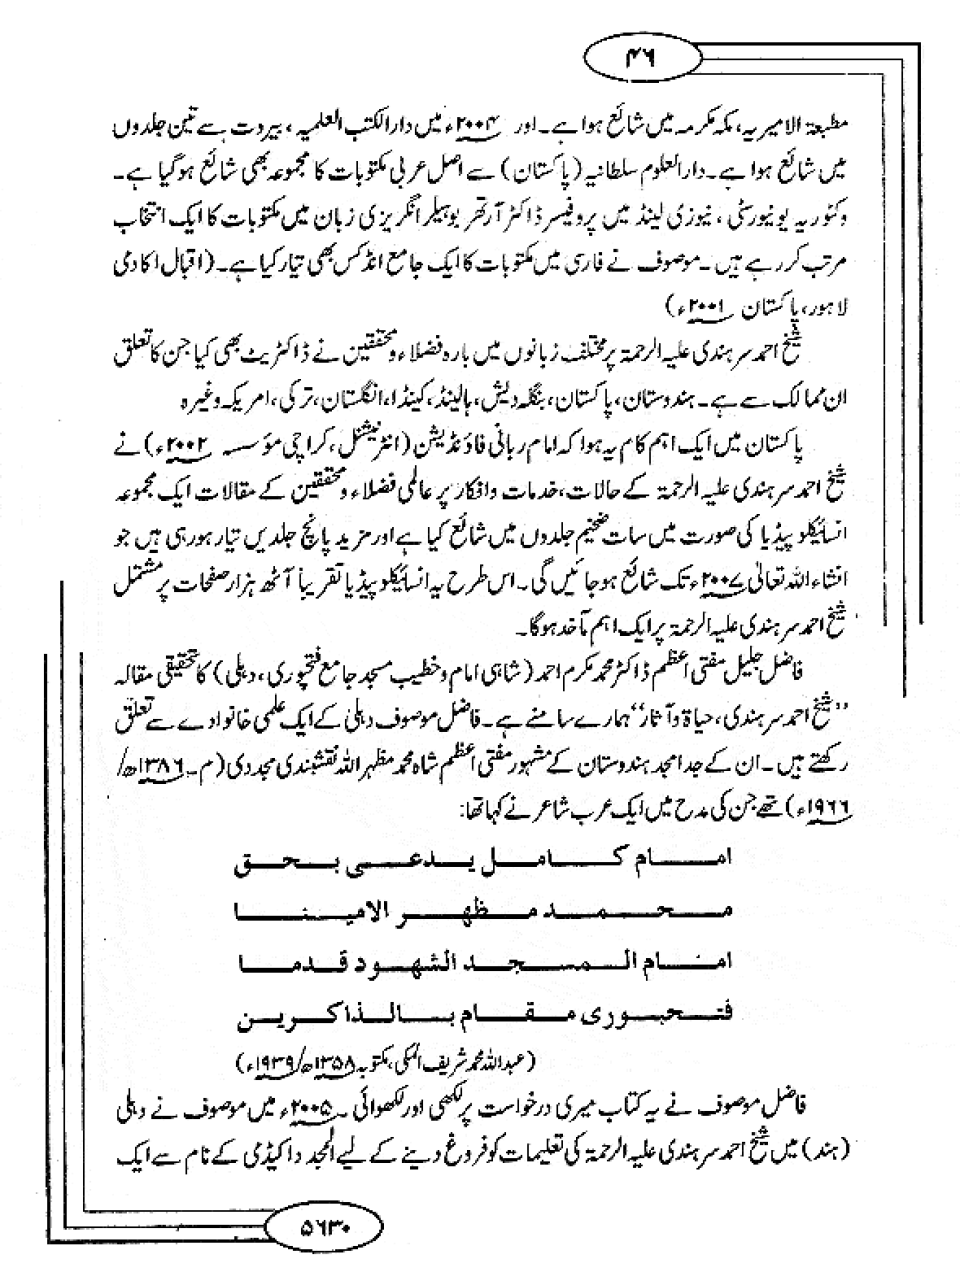 ۴۶
مطبعۃ الامیریہ، مکہ مکرمہ میں شائع ہوا ہے۔ اور ۲۰۰۴ء میں دارالکتب العلمیہ، بیروت سے تین جلدوں
میں شائع ہوا ہے۔ دارالعلوم سلطانیہ (پاکستان) سے اصل عربی مکتوبات کا مجموعہ بھی شائع ہو گیا ہے۔
وکٹوریہ یونیورسٹی، نیوزی لینڈ میں پروفیسر ڈاکٹر آرتھر بوہیلر انگریزی زبان میں مکتوبات کا ایک انتخاب
مرتب کر رہے ہیں۔ موصوف نے فارسی میں مکتوبات کا ایک جامع انڈکس بھی تیار کیا ہے۔ (اقبال اکادمی
لاہور، پاکستان ۲۰۰۱ء)
شیخ احمد سرہندی علیہ الرحمۃ پر مختلف زبانوں میں بارہ فضلاء و محققین نے ڈاکٹریٹ بھی کیا جن کا تعلق
ان ممالک سے ہے۔ ہندوستان، پاکستان، بنگلہ دیش، ہالینڈ، کینڈا، انگلستان، ترکی، امریکہ وغیرہ
پاکستان میں ایک اہم کام یہ ہوا کہ امام ربانی فاؤنڈیشن (انٹرنیشنل، کراچی مؤسسہ ۲۰۰۲ء) نے
شیخ احمد سرہندی علیہ الرحمۃ کے حالات، خدمات و افکار پر عالمی فضلاء و محققین کے مقالات ایک مجموعہ
انسائیکلوپیڈیا کی صورت میں سات ضخیم جلدوں میں شائع کیا ہے اور مزید پانچ جلدیں تیار ہو رہی ہیں جو
انشاء اللہ تعالیٰ ۲۰۰۷ء تک شائع ہو جائیں گی۔ اس طرح یہ انسائیکلوپیڈیا تقریباً آٹھ ہزار صفحات پر مشتمل
شیخ احمد سرہندی علیہ الرحمۃ پر ایک اہم مآخذ ہوگا۔
فاضل جلیل مفتی اعظم ڈاکٹر محمد مکرم احمد (شاہی امام و خطیب مسجد جامع فتحپوری، دہلی) کا تحقیقی مقالہ
”شیخ احمد سرہندی، حیاۃ و آثار“ ہمارے سامنے ہے۔ فاضل موصوف دہلی کے ایک علمی خانوادے سے تعلق
رکھتے ہیں۔ ان کے جد امجد ہندوستان کے مشہور مفتی اعظم شاہ محمد مظہر اللہ نقشبندی مجددی (م۔ ۱۳۸۶ھ/
۱۹۶۶ء) تھے جن کی مدح میں ایک عرب شاعر نے کہا تھا:
امام کامل یدعی بحق
محمد مظہر الامینا
امام المسجد الشہود قدما
فتحبوری مقام بالذاکرین
(عبداللہ محمد شریف المکی، مکتوبہ ۱۳۵۸ھ/۱۹۳۹ء)
فاضل موصوف نے یہ کتاب میری درخواست پر لکھی اور لکھوائی ۲۰۰۵ء میں موصوف نے دہلی
(ہند) میں شیخ احمد سرہندی علیہ الرحمۃ کی تعلیمات کو فروغ دینے کے لیے المجدد اکیڈمی کے نام سے ایک
۵۶۳۰